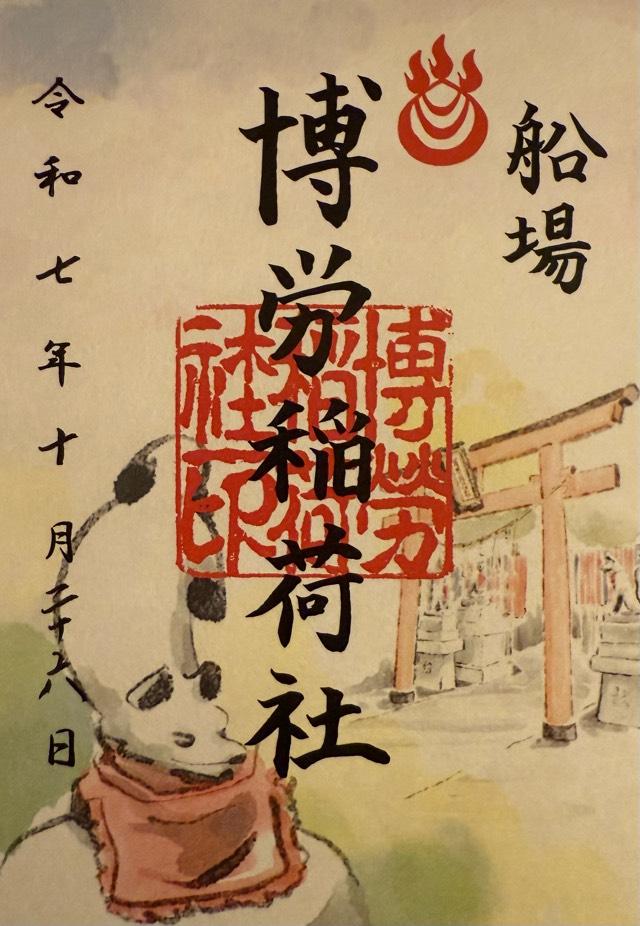 船場
博労稲荷社
博勞
稲荷
社印
令和七年十月二十六日